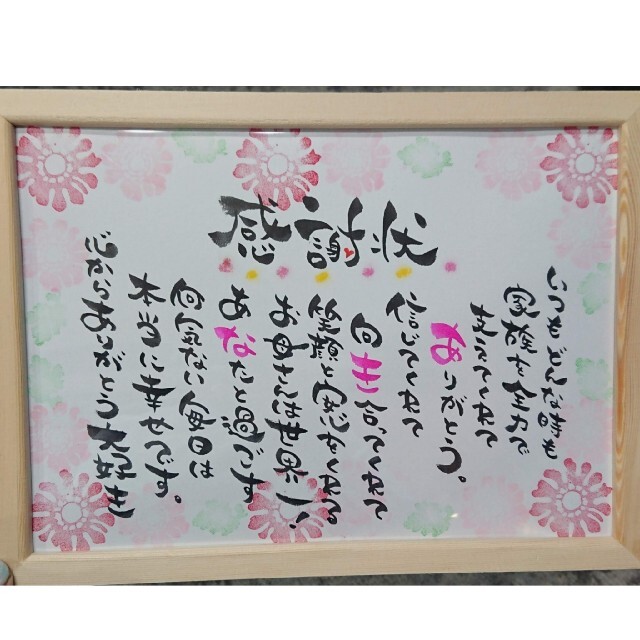 感謝状
いつもどんな時も
家族を全力で
支えてくれて
ありがとう。
信じてくれて
向き合ってくれて
笑顔と安心をくれる
お母さんは世界一!
あなたと過ごす
何気ない毎日は
本当に幸せです。
心からありがとう大好き